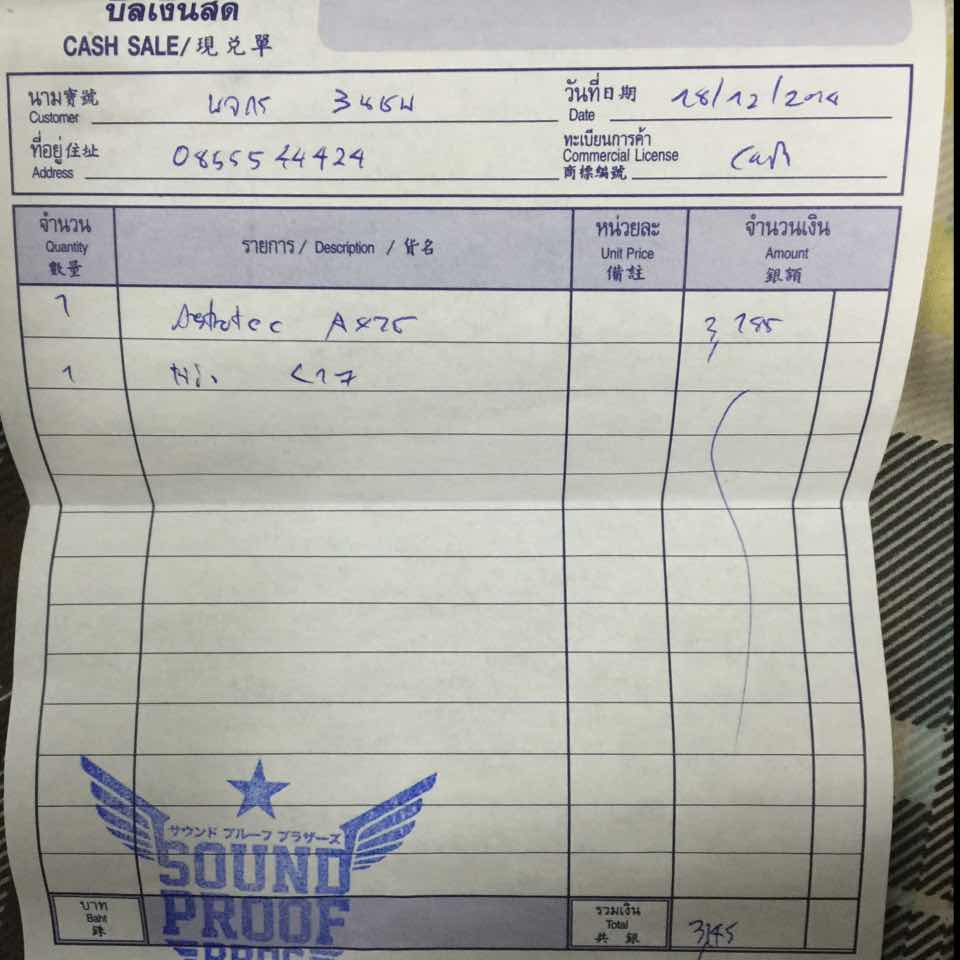 บิลเงินสด
CASH SALE/現兌單
นาม寶號
Customer
วันที่日期
Date 18/12/2014
ที่อยู่住址
Address 0855544424
ทะเบียนการค้า
Commercial License
商標編號 Cash
จำนวน
Quantity
數量
รายการ / Description / 貨名
หน่วยละ
Unit Price
備註
จำนวนเงิน
Amount
銀額
1 Astrotec AX25
1
サウンド プルーフ ブラザーズ
SOUND
PROOF
BROS
บาท
Baht
銖
รวมเงิน
Total
共銀